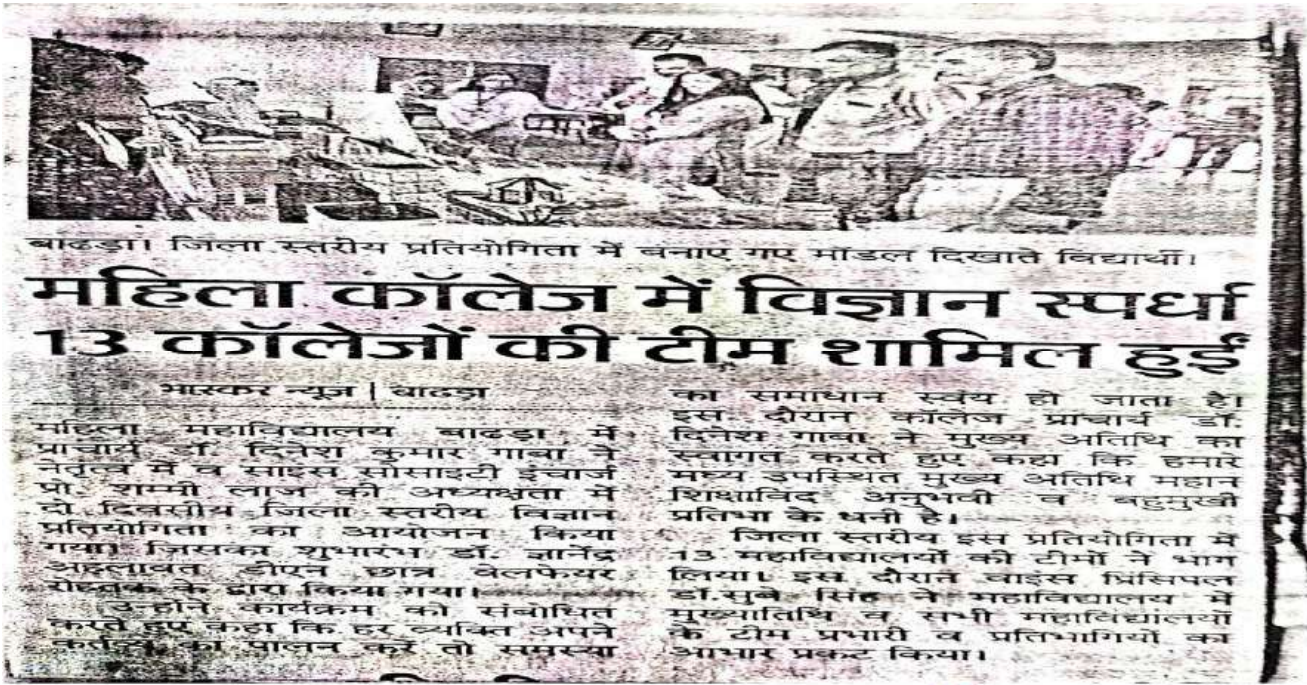 बाढड़ा। जिला स्तरीय प्रतियोगिता में बनाए गए मॉडल दिखाते विद्यार्थी।
महिला कॉलेज में विज्ञान स्पर्धा
13 कॉलेजों की टीम शामिल हुई
भास्कर न्यूज | बाढड़ा
महिला महाविद्यालय बाढड़ा में
प्राचार्य डॉ. दिनेश कुमार गाबा ने
नेतृत्व में व साइंस सोसाइटी इंचार्ज
प्रो. शम्मी लाज की अध्यक्षता में
दो दिवसीय जिला स्तरीय विज्ञान
प्रतियोगिता का आयोजन किया
गया। जिसका शुभारंभ डॉ. ज्ञानेंद्र
अहलावत डीएन छात्र वेलफेयर
रोहतक के द्वारा किया गया।
उन्होंने कार्यक्रम को संबोधित
करते हुए कहा कि हर व्यक्ति अपने
कर्तव्य का पालन करें तो समस्या
का समाधान स्वंय हो जाता है।
इस दौरान कॉलेज प्राचार्य डॉ.
दिनेश गाबा ने मुख्य अतिथि का
स्वागत करते हुए कहा कि हमारे
मध्य उपस्थित मुख्य अतिथि महान
शिक्षाविद अनुभवी व बहुमुखी
प्रतिभा के धनी है।
जिला स्तरीय इस प्रतियोगिता में
13 महाविद्यालयों की टीमों ने भाग
लिया। इस दौरान वाइस प्रिंसिपल
डॉ.सुबे सिंह ने महाविद्यालय में
मुख्यातिथि व सभी महाविद्यालयों
के टीम प्रभारी व प्रतिभागियों का
आभार प्रकट किया।